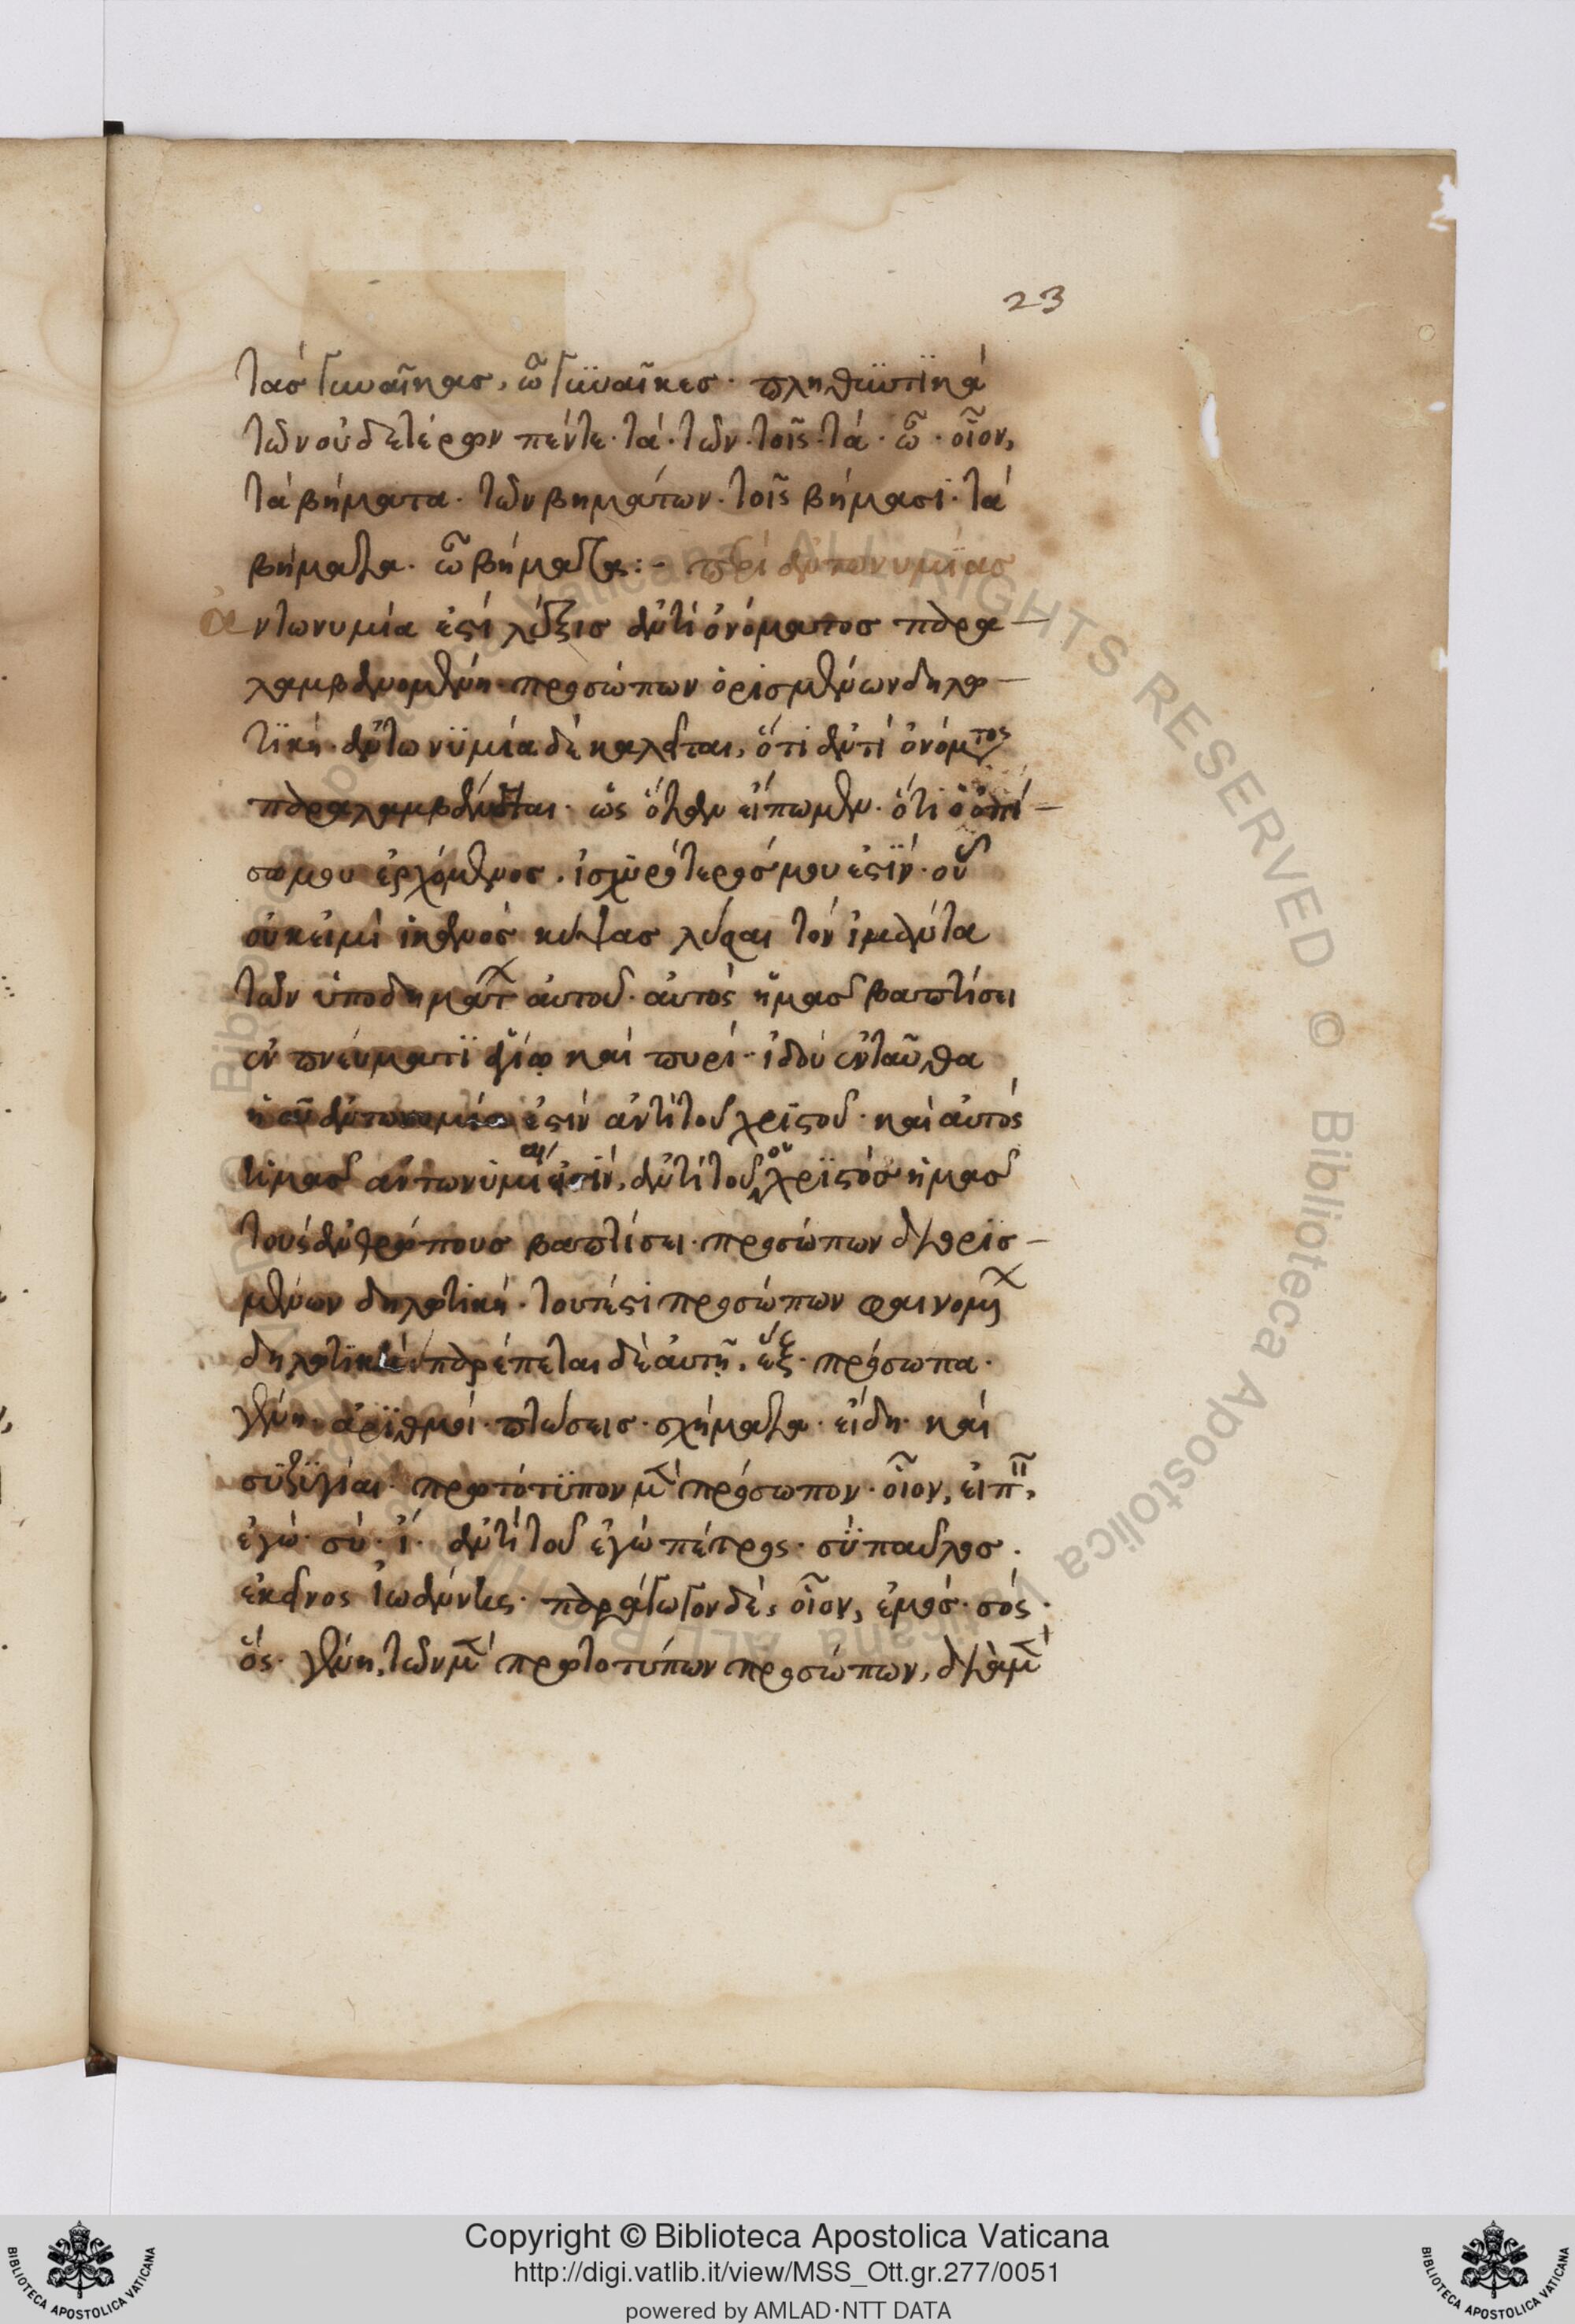 23
τὰσ γυναῖκασ, ὦ γϋναῖκεσ· πληθϋντϊκὰ
τῶν οὐδετέρων πέντε· τὰ· τῶν· τοῖς· τὰ· ὦ· οἷον,
τὰ βήματα· τῶν βημάτων· τοῖς βήμασϊ· τὰ
βήματα· ὦ βήματα:- περὶ ἀντωνυμίασ
ἀντωνυμία ἐστὶ λέξισ ἀντὶ ὀνόματοσ παρα—
λαμβανομένη προσώπων ὁρισμένων δηλω—
τϊκή· ἀντωνϋμία δὲ καλεῖται, ὅτι ἀντὶ ὀνόμτος
παραλαμβάνεται· ὡς ὅταν εἴπωμεν· ὅτι ὁ ὀπί—
σω μου ἐρχόμενοσ· ἰσχϋρότεροσ μου ἐστϊν· οὗ
οὐκ εἰμὶ ἱκανὸσ κύψασ λύσαι τὸν ἱμάντα
τῶν ὑποδημάτ αὐτοῦ· αὐτὸς ἡμασ βαπτίσει
ἐν πνεύματϊ ἁγίω καὶ πυρί· ἰδοὺ ἐνταῦθα
ἐστὶν ἀντὶ τοῦ χρϊστοῦ· καὶ αὐτὸς
ἡμασ ἀντωνυμίαι ἀντὶ τοῦ ὁ χρϊστὸσ ἡμασ
τοὺς ἀνθρώπουσ βαπτίσει· προσώπων δὲ ὁρισ—
μένων δηλωτικὴ· τουτέστι προσώπων φαινομ
δηλωτικὴ παρέπεται δὲ αὐτῆ· ἕξ· πρόσωπα·
γένη· ἀρϊθμοὶ· πτώσεισ· σχήματα· εἴδη· καὶ
σϋζϋγίαι· πρωτότϋπον μ πρόσωπον· οἷον, ἐπ,
ἐγὼ· σὺ· ἵ· ἀντὶ τοῦ ἐγὼ πέτρος· σϋ παῦλοσ·
ἐκεῖνος ἰωάννης· παράγωγον δὲ, οἷον, ἐμόσ· σός·
ὅς· γένη, τῶν μ πρωτοτύπων προσώπων,
Copyright © Biblioteca Apostolica Vaticana
http://digi.vatlib.it/view/MSS_Ott.gr.277/0051
powered by AMLAD·NTT DATA